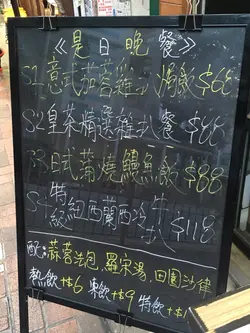 《是日晚餐》
S1意式茄蓉雞扒焗飯$68
S2皇菜精選雞扒餐$68
S3日式蒲燒鰻魚飯$88
S4特級紐西蘭西冷牛扒$118
配:蒜蓉法包, 羅宋湯, 田園沙律
熱飲+$6 凍飲+$9 特飲+$1